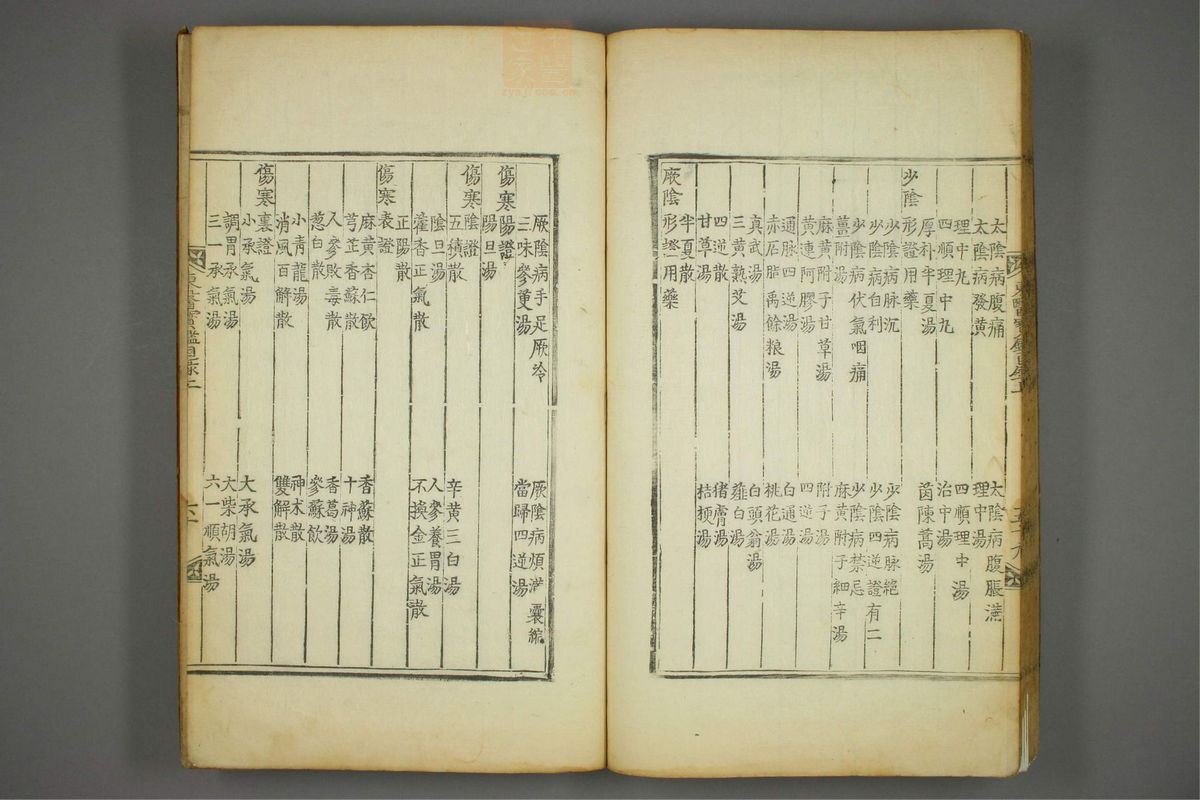 東醫寶鑑目錄上 五十九
太陰病腹痛 太陰病腹脹滿
太陰病發黃 理中湯
理中丸 四順理中湯
四順理中丸 治中湯
厚朴半夏湯 茵陳蒿湯
少陰形證用藥
少陰病脉沉 少陰病脉絶
少陰病自利 少陰四逆證有二
少陰病伏氣咽痛 少陰病禁忌
薑附湯 麻黃附子細辛湯
麻黃附子甘草湯 附子湯
黃連阿膠湯 四逆湯
通脉四逆湯 白通湯
赤石脂禹餘粮湯 桃花湯
真武湯 白頭翁湯
三黃熟艾湯 薤白湯
四逆散 猪膚湯
甘草湯 桔梗湯
半夏散
厥陰形證用藥
厥陰病手足厥冷 厥陰病煩滿囊縮
三味參萸湯 當歸四逆湯
傷寒陽證
陽旦湯
傷寒陰證
五積散 辛黃三白湯
陰旦湯 人參養胃湯
藿香正氣散 不換金正氣散
正陽散
傷寒表證
麻黃杏仁飲 香蘇散
芎芷香蘇散 十神湯
人參敗毒散 香葛湯
葱白散 參蘇飲
小青龍湯 神朮散
消風百解散 雙解散
傷寒裏證
小承氣湯 大承氣湯
調胃承氣湯 大柴胡湯
三一承氣湯 六一順氣湯
東醫寶鑑目錄上 六十